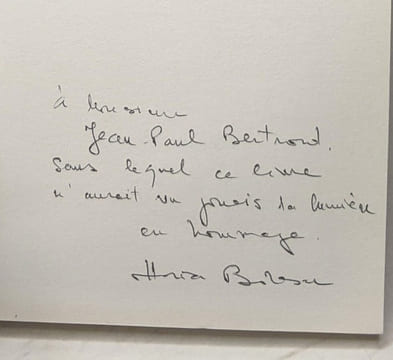 à Monsieur
Jean-Paul Bertrand,
sans lequel ce livre
n'aurait vu jamais la lumière
en hommage.
Horia